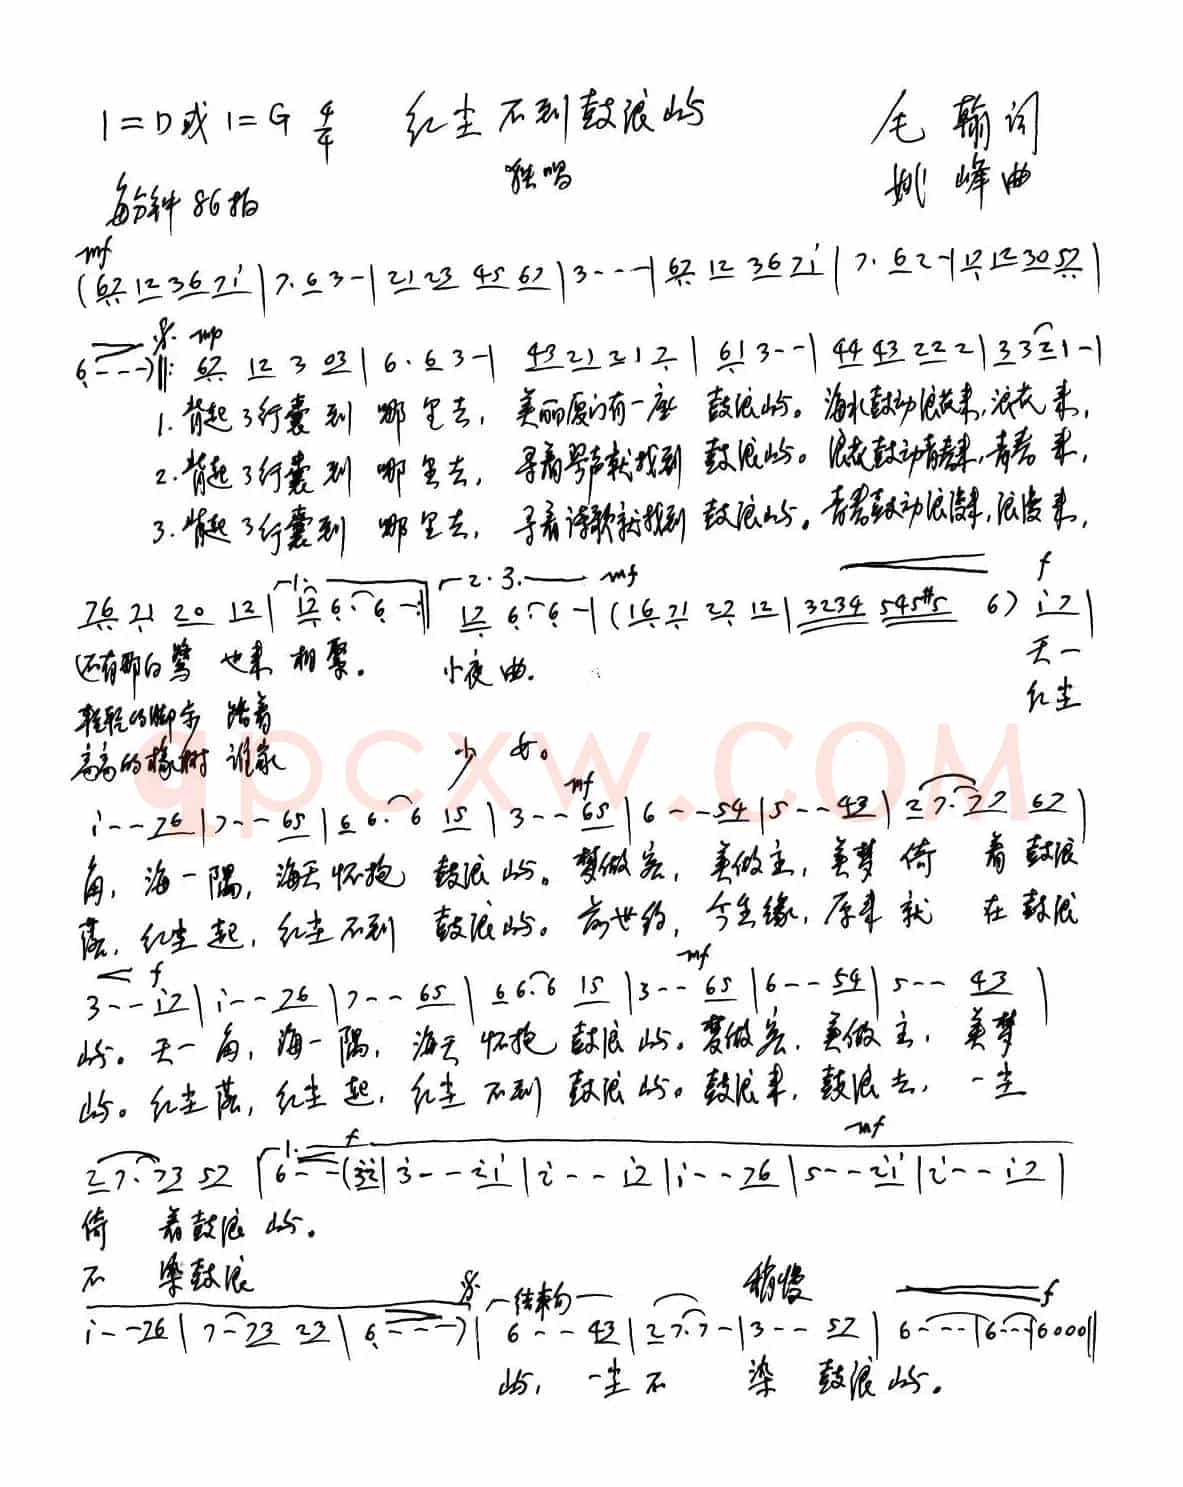 1=D或1=G 4/4 红尘不到鼓浪屿 毛翰词
独唱 姚峰曲
每分钟86拍
mf
(67 12 36 71̇ | 7. 6 3 - | 21 23 45 67 | 3 - - - | 67 12 36 71̇ | 7. 6 2 - | 17 12 30 57 |
mp
6 - - -) ‖: 67 12 3 03 | 6. 6 3 - | 43 21 21 7 | 61 3 - - | 44 43 22 2 | 33 21 - |
1. 背起了行囊到 哪里去, 美丽厦门有一座 鼓浪屿。海水鼓动浪花来,浪花来,
2. 背起了行囊到 哪里去, 寻着琴声就找到 鼓浪屿。浪花鼓动青春来,青春来,
3. 背起了行囊到 哪里去, 寻着诗歌就找到 鼓浪屿。青春鼓动浪漫来,浪漫来,
1. 2. 3. mf f
76 71 20 12 | 17 6. 6 - :‖ 17 6. 6 - | (16 71 27 12 | 3234 545#5 6) 1̇7 |
还有那白鹭 也来 相聚。 小夜曲. 天一
轻轻的脚步 踏着 红尘
高高的椽树 谁家 少女。
mf
1̇ - - 76 | 7 - - 65 | 6 6. 6 15 | 3 - - 65 | 6 - - 54 | 5 - - 43 | 2 7. 77 67 |
角, 海一隅, 海天怀抱 鼓浪屿。梦做客, 美做主, 美梦 倚 着 鼓浪
落, 红尘起, 红尘不到 鼓浪屿。前世约, 今生缘, 原来 就 在 鼓浪
f mf
3 - - 1̇7 | 1̇ - - 76 | 7 - - 65 | 6 6. 6 15 | 3 - - 65 | 6 - - 54 | 5 - - 43 |
屿。天一角, 海一隅, 海天 怀抱 鼓浪屿。梦做客, 美做主, 美梦
屿。红尘落, 红尘起, 红尘 不到 鼓浪屿。鼓浪来, 鼓浪去, 一尘
1. f mf
2 7. 73 57 | 6 - - (3̇2̇ | 3̇ - - 2̇1̇ | 2̇ - - 1̇7 | 1̇ - - 76 | 5 - - 2̇1̇ | 2̇ - - 1̇7 |
倚 着鼓浪屿。
不 染鼓浪
结束句 稍慢 f
1̇ - - 76 | 7 - 73 23 | 6 - - -) | 6 - - 43 | 2 7. 7 - | 3 - - 57 | 6 - - - | 6 - - - | 6000 ‖
屿, 一尘不 染 鼓浪屿。
qpcxw.com